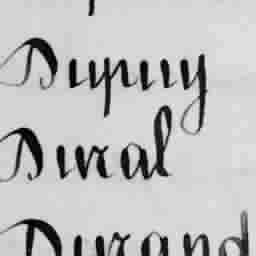 Dupuy
Dural
Durand